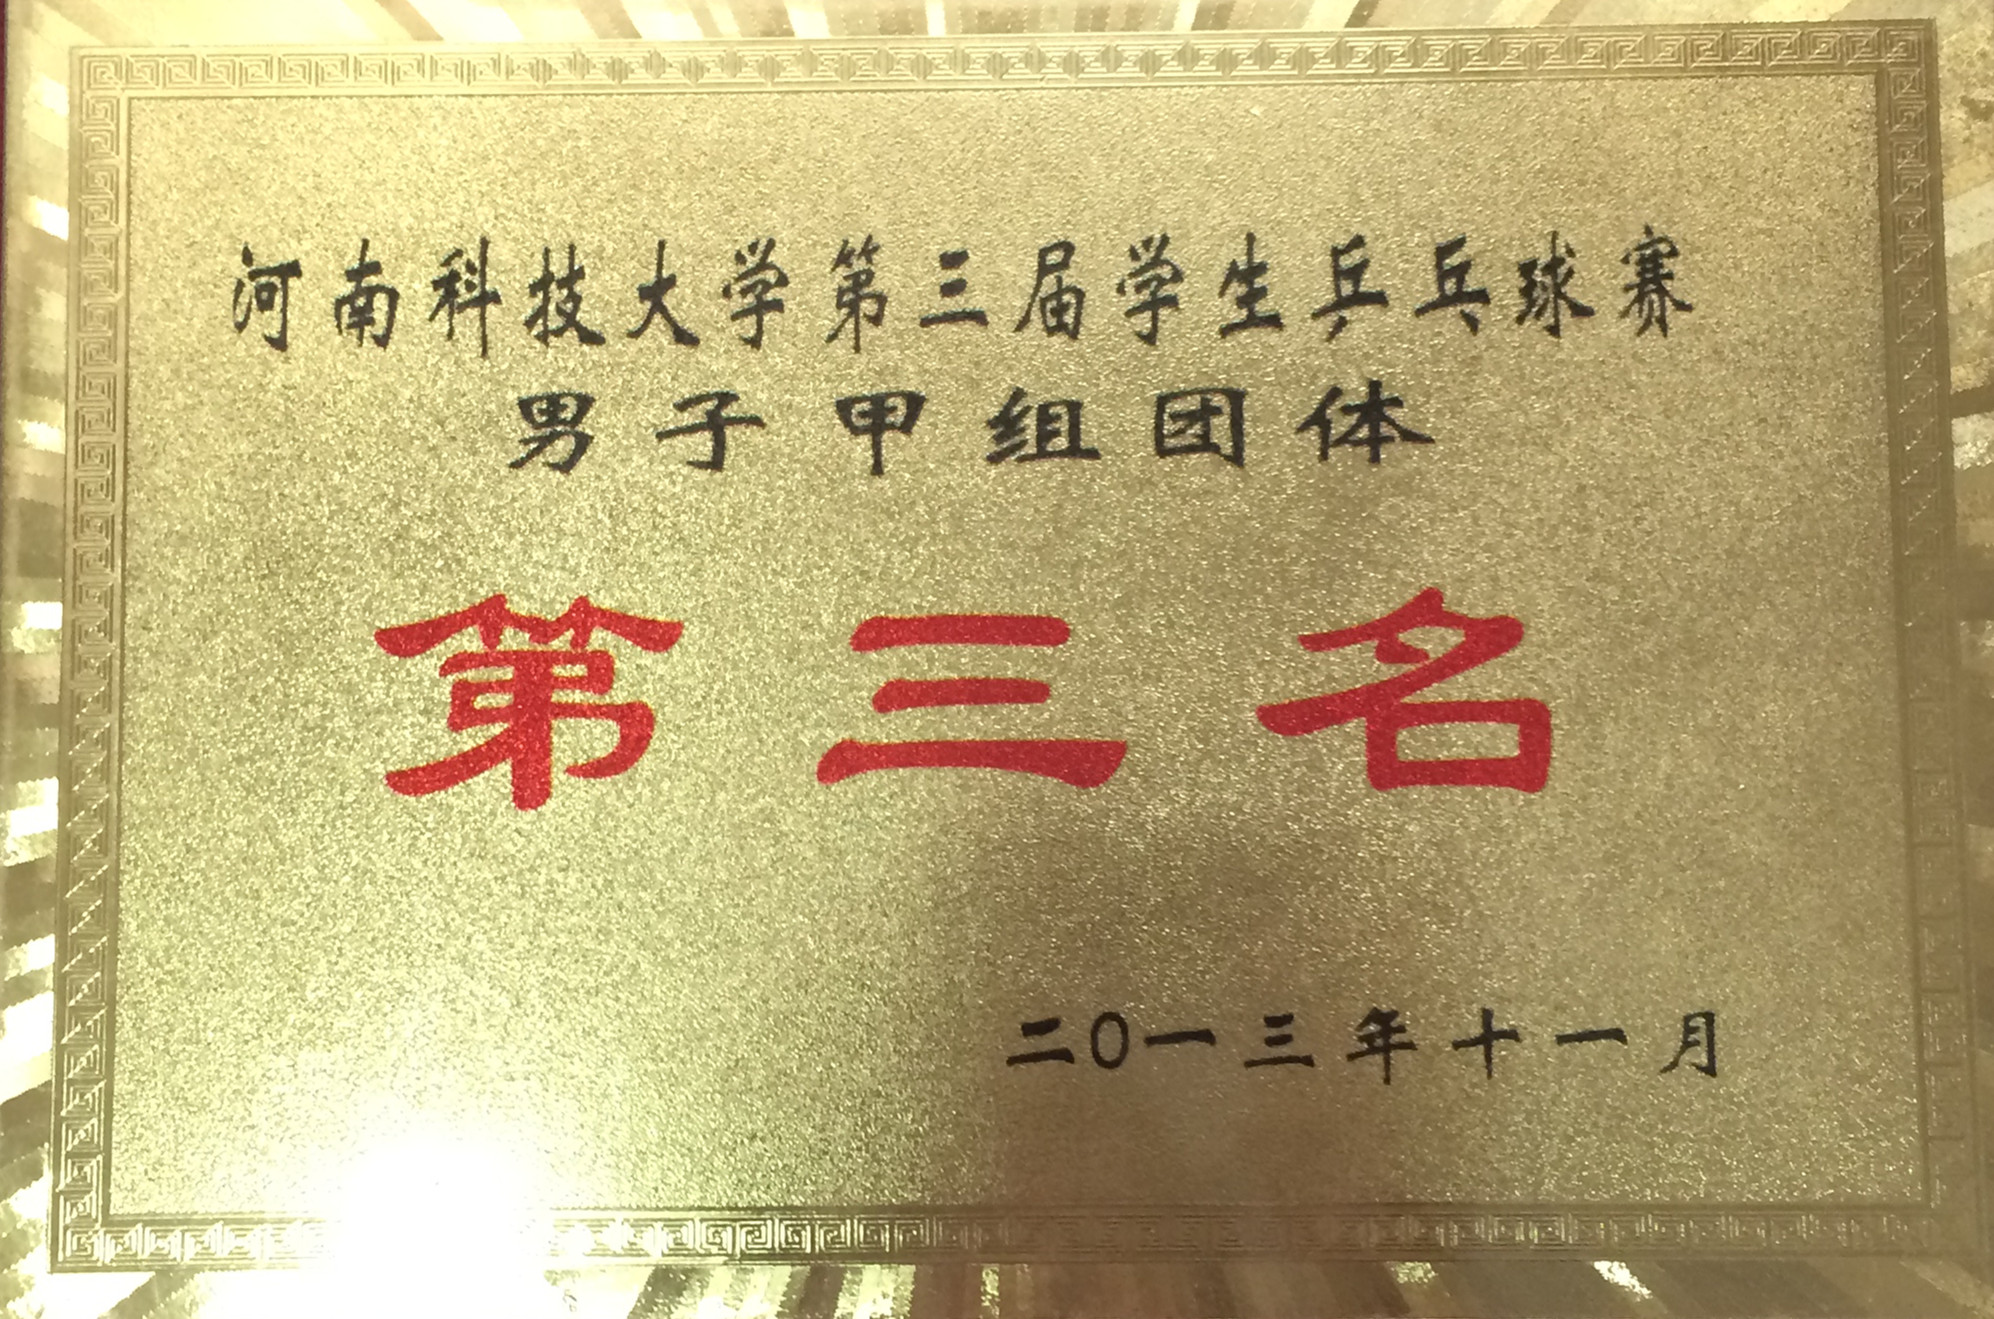 河南科技大学第三届学生乒乓球赛
男子甲组团体
第三名
二〇一三年十一月